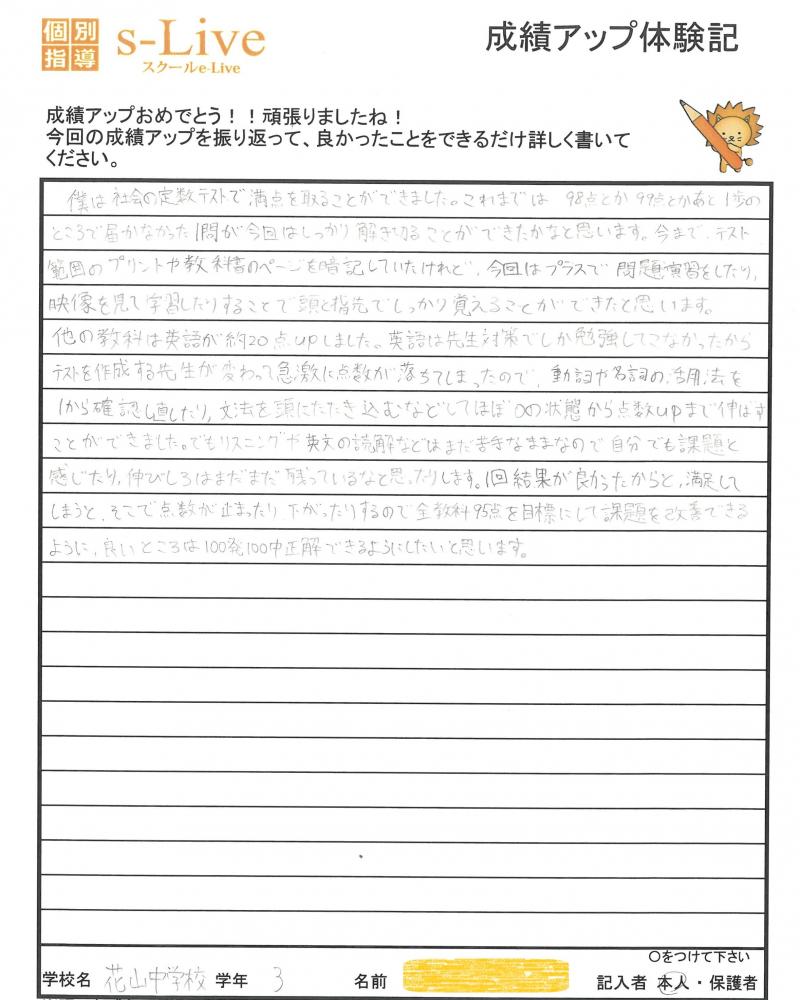 個別
指導
s-Live
スクールe-Live
成績アップ体験記
成績アップおめでとう！！頑張りましたね！
今回の成績アップを振り返って、良かったことをできるだけ詳しく書いて
ください。
僕は社会の定数テストで満点を取ることができました。これまでは 98点とか99点とかあと1歩の
ところで届かなかった1問が今回はしっかり解き切ることができたかなと思います。今まで、テスト
範囲のプリントや教科書のページを暗記していたけれど、今回はプラスで問題演習をしたり,
映像を見て学習したりすることで頭と指先でしっかり覚えることができたと思います。
他の教科は英語が約20点upしました。英語は先生対策でしか勉強してこなかったから
テストを作成する先生が変わって急激に点数が落ちてしまったので、動詞や名詞の活用法を
1から確認し直したり,文法を頭にたたき込むなどしてほぼ0の状態から点数upまで伸ばす
ことができました。でもリスニングや英文の読解などはまだ苦手なままなので自分でも課題と
感じたり,伸びしろはまだまだ残っているなと思ったりします。1回結果が良かったからと,満足して
しまうと、そこで点数が止まったり下がったりするので全教科95点を目標にして課題を改善できる
ように,良いところは100発100中正解できるようにしたいと思います。
〇をつけて下さい
学校名 花山中学校 学年 3 名前 記入者 本人・保護者